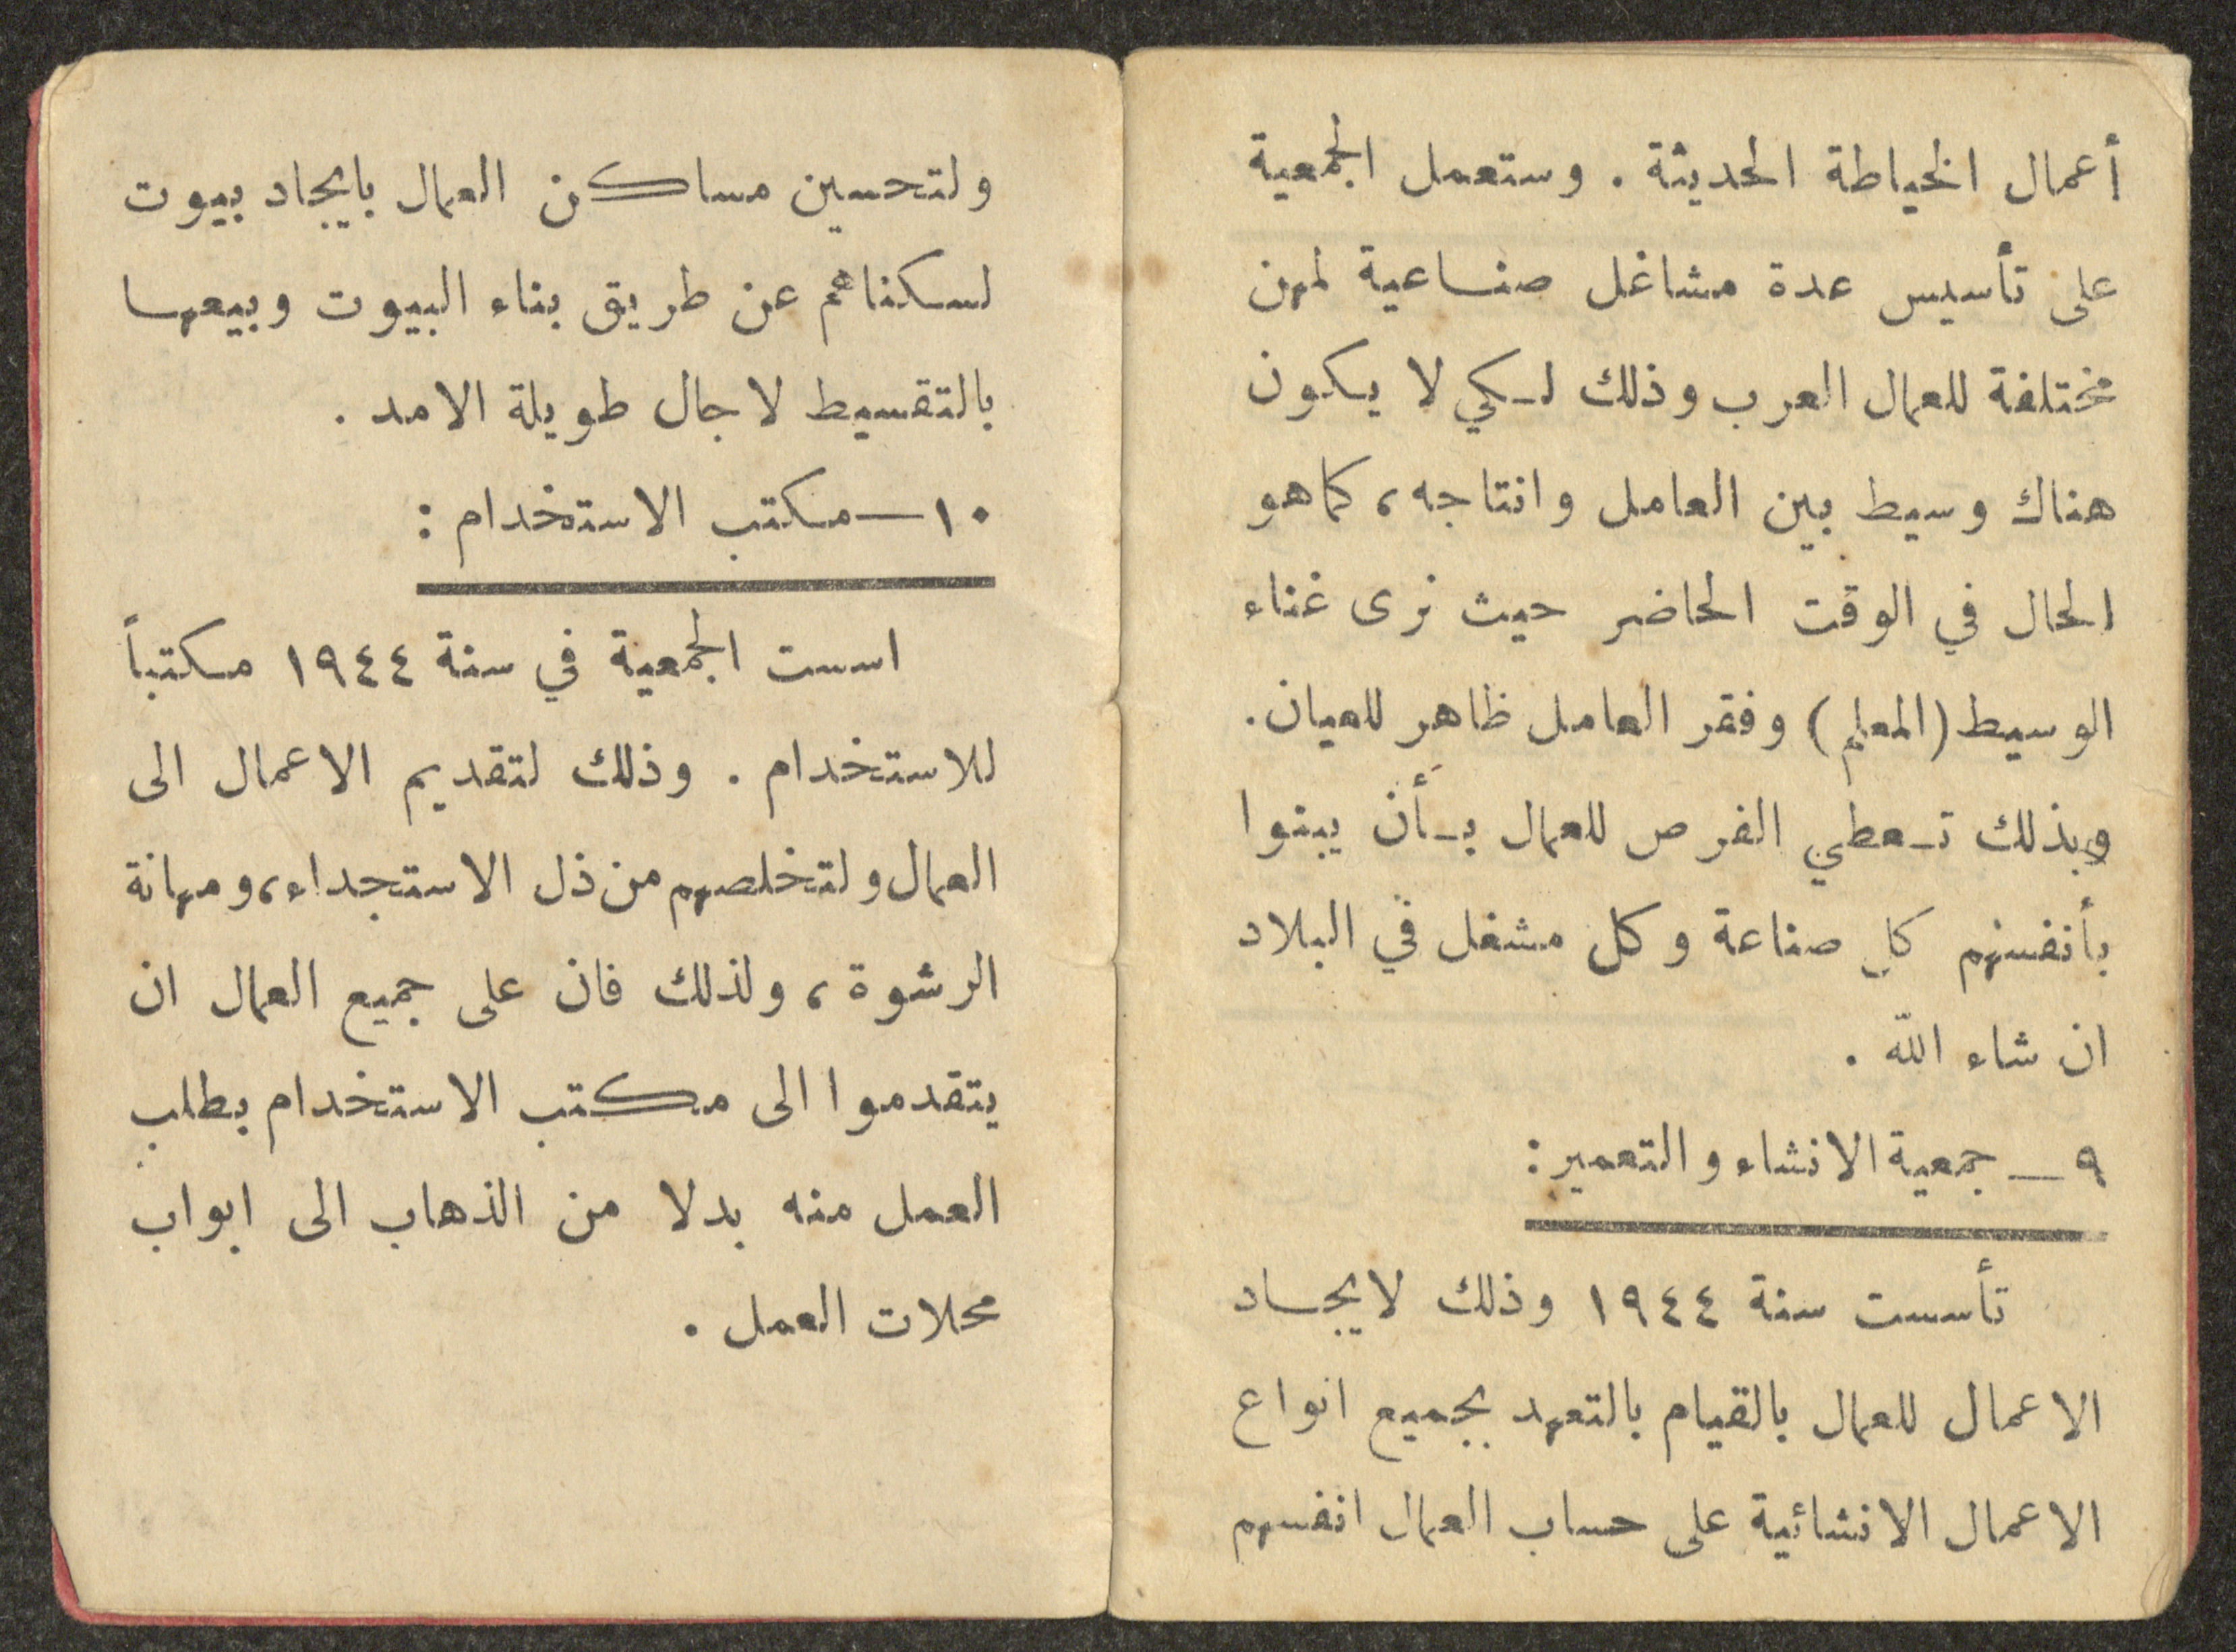 أعمال الخياطة الحديثة . وستعمل الجمعية
على تأسيس عدة مشاغل صناعية لمهن
مختلفة للعمال العرب وذلك لكي لا يكون
هناك وسيط بين العامل وانتاجه، كما هو
الحال في الوقت الحاضر حيث نرى غناء
الوسيط (المعلم) وفقر العامل ظاهر للعيان.
وبذلك تعطي الفرص للعمال بأن يبنوا
بأنفسهم كل صناعة وكل مشغل في البلاد
ان شاء الله .
٩ — جمعية الانشاء والتعمير :
تأسست سنة ١٩٤٤ وذلك لايجاد
الاعمال للعمال بالقيام بالتعهد بجميع انواع
الاعمال الانشائية على حساب العمال انفسهم
ولتحسين مساكن العمال بايجاد بيوت
لسكناهم عن طريق بناء البيوت وبيعها
بالتقسيط لاجال طويلة الامد .
١٠ — مكتب الاستخدام :
اسست الجمعية في سنة ١٩٤٤ مكتباً
للاستخدام . وذلك لتقديم الاعمال الى
العمال ولتخلصهم من ذل الاستجداء، ومهانة
الرشوة، ولذلك فان على جميع العمال ان
يتقدموا الى مكتب الاستخدام بطلب
العمل منه بدلا من الذهاب الى ابواب
محلات العمل .